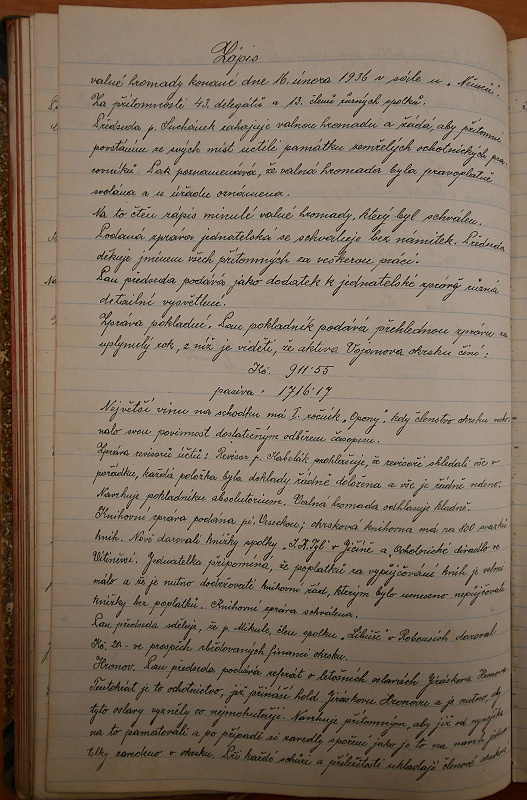 Zápis
valné hromady konané dne 16. února 1936 v sále u „Němců".
Za přítomnosti 43. delegátů a 13. členů různých spolků.
Předseda p. Suchánek zahajuje valnou hromadu a žádá, aby přítomní
povstáním se svých míst uctili památku zemřelých ochotnických pra-
covníků. Pak poznamenává, že valná hromada byla pravoplatně
svolána a u úřadu oznámena.
Na to čten zápis minulé valné hromady, který byl schválen.
Podaná zpráva jednatelská se schvaluje bez námitek. Předseda
děkuje jménem všech přítomných za veškerou práci.
Pan předseda podává jako dodatek k jednatelské zprávě různá
detailní vysvětlení.
Zpráva pokladní: Pan pokladník podává přehlednou zprávu za
uplynulý rok, z níž je viděti, že aktiva Vojanova okrsku činí:
Kč. 911·55
pasiva: 1716·17
Největší vinu na schodku má I. ročník „Opony", kdy členstvo okrsku neko-
nalo svou povinnost dostatečným odběrem časopisu.
Zpráva revisorů účtů: Revisor p. Kabelák prohlašuje, že revisoři shledali vše v
pořádku, každá položka byla doklady řádně doložena a vše je řádně vedeno.
Navrhuje pokladníku absolutorium. Valná hromada odhlasuje kladně.
Knihovní zpráva podána pí Vaseckou; okrsková knihovna má na 800 svazků
knih. Nově darovali knížky spolky „J. K. Tyl" v Jičíně a „Ochotnické divadlo ve
Vitiněvsi. Jednatelka připomíná, že poplatků za vypůjčování knih je velmi
málo a že je nutno dodržovati knihovní řád, kterým bylo usneseno nepůjčovati
knížky bez poplatků. Knihovní zpráva schválena.
Pan předseda sděluje, že p. Mikule, člen spolku „Libuše" v Robousích daroval
Kč. 20.- ve prospěch zbědovaných financí okrsku.
Hronov. Pan předseda podává referát o letošních oslavách Jiráskova Hronova.
Tentokrát je to ochotnictvo, jež přináší hold Jiráskovu Hronovu a je nutno, aby
tyto oslavy vyzněly co nejmohutněji. Navrhuje přítomným, aby již od nynějška
na to pamatovali a po případě si zavedly spoření jako je to na návrh jedna-
telky zavedeno v okrsku. Při každé schůzi a příležitosti ukládají členové okrskové